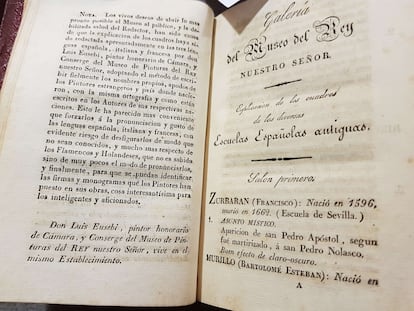 NOTA. Los vivos deseos de abrir lo mas
pronto posible el Museo al público, y la
delicada salud del Redactor, han sido
de que la explicacion de los cuadros haya
redactada apresuradamente en las tres len-
guas, española, italiana y francesa por don
Luis Eusebi, pintor honorario de Cámara, y
Conserge del Museo de Pinturas del REY
nuestro Señor, adoptando el método de escri-
bir fielmente los nombres propios, apodos de
los Pintores estrangeros y pais donde nacie-
ron, con la misma ortografia y como están
escritos en los Autores de sus respectivas na-
ciones. Esto le ha parecido mas conveniente
que forzarlos á la pronunciacion y gusto de
las lenguas española, italiana y francesa, con
evidente riesgo de desfigurarlos de modo que
no sean conocidos, y mucho mas respecto de
los Flamencos y Holandeses, que no es sabido
sino de muy pocos el modo de pronunciarlos,
y finalmente, para que se puedan identificar
las firmas y monogramas que los Pintores han
puesto en sus obras, cosa interesantísima para
los inteligentes y aficionados.
Don Luis Eusebi, pintor honorario
de Cámara, y Conserge del Museo de Pin-
turas del REY nuestro Señor, vive en el
mismo Establecimiento.
Galería
del Museo del Rey
NUESTRO SEÑOR.
Explicacion de los cuadros
de las diversas
Escuelas Españolas antiguas.
Salon primero.
ZURBARAN (FRANCISCO): Nació en 1596,
murió en 1662. (Escuela de Sevilla.)
1. ASUNTO MISTICO.
Aparicion de san Pedro Apóstol, segun
fué martirizado, á san Pedro Nolasco.
Bom efecto de claro-oscuro.
MURILLO (BARTOLOMÉ ESTEBAN): Nació en
A